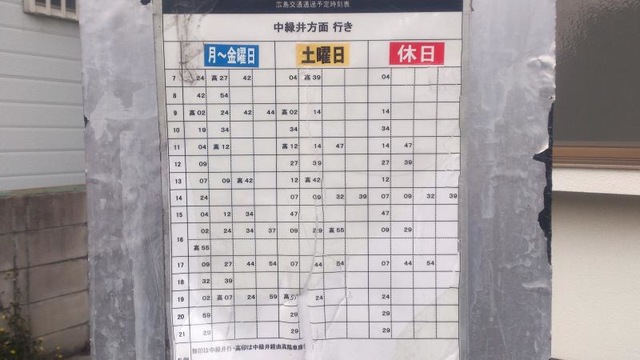 広島交通通過予定時刻表
中緑井方面 行き
月～金曜日 土曜日 休日
7 24 高27 42 04 高39 04
8 42 54
9 高02 24 42 44 高02 14 14
10 19 34 34 34
11 04 高12 高12 14 47 14 47
12 09 27 39 27 39
13 07 09 高42 12 高42 12
14 24 07 09 32 39 07 09 32 39
15 04 12 34 47 47
16 02 24 34 37 09 29 高55 09 29
高55
17 09 27 44 54 07 44 54 07 44 54
18 32 39
19 02 高07 24 59 24 24
20 59 29 29
21 29 29
無印は中緑井行・高印は中緑井経由高陽車庫